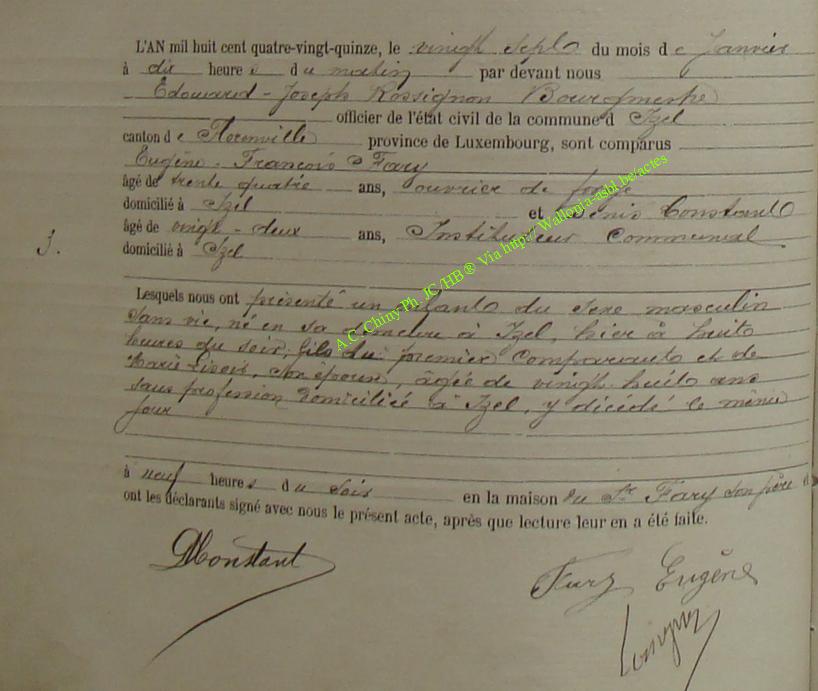 L'AN mil huit cent quatre-vingt-quinze, le vingt sept du mois de Janvier
à dix heures du matin par devant nous
Edouard-Joseph Rossignon Bourgmestre
officier de l'état civil de la commune d Izel
canton de Florenville province de Luxembourg, sont comparus
Eugène-François Fary
âgé de trente quatre ans, ouvrier de forge
domicilié à Izel et Denis Constant
âgé de vingt-deux ans, Instituteur Communal
3.
domicilié à Izel
Lesquels nous ont présenté un enfant du sexe masculin
sans vie, né en sa demeure à Izel, hier à huit
heures du soir, fils du premier Comparant et de
Marie, son épouse, âgée de vingt-huit ans
sans profession domiciliée à Izel, y décédé le même
jour
à neuf heures du soir en la maison du Sr Fary son père et
ont les déclarants signé avec nous le présent acte, après que lecture leur en a été faite.
DConstant
Fary Eugène
A.C. Chiny Ph. JC/HB® Via http://Wallonia-asbl.be/actes